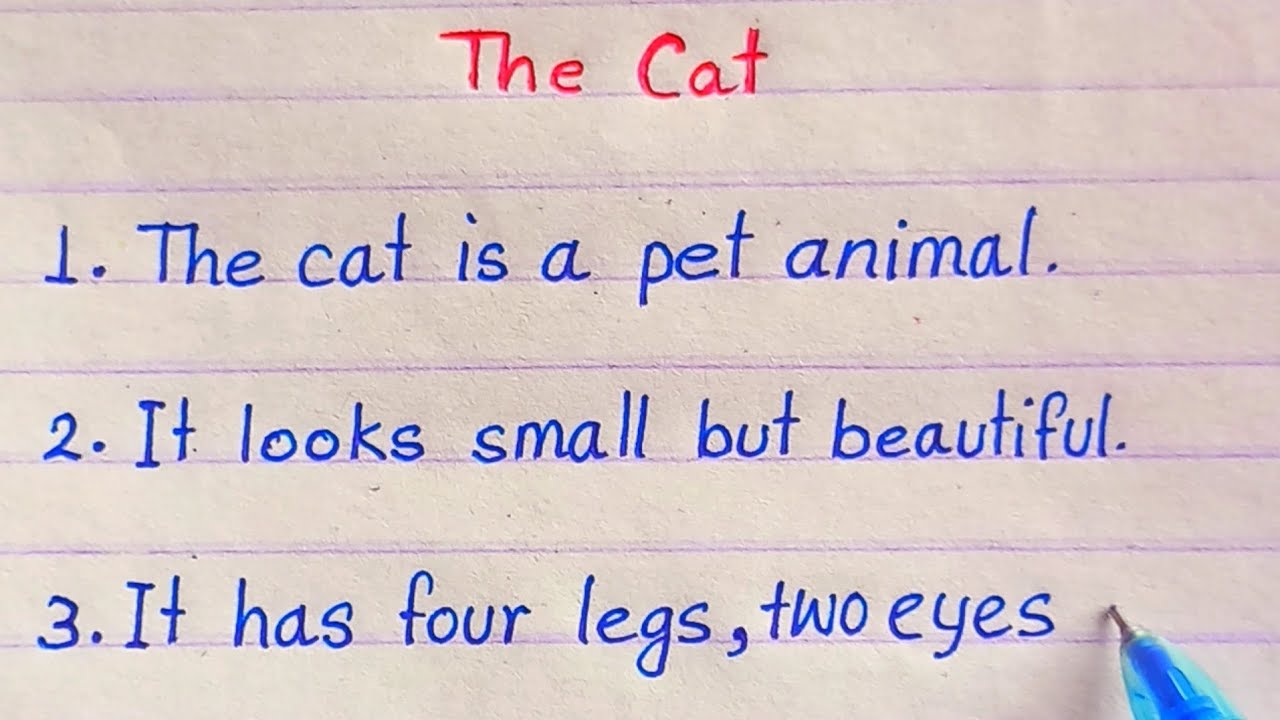 The Cat
1. The cat is a pet animal.
2. It looks small but beautiful.
3. It has four legs, two eyes